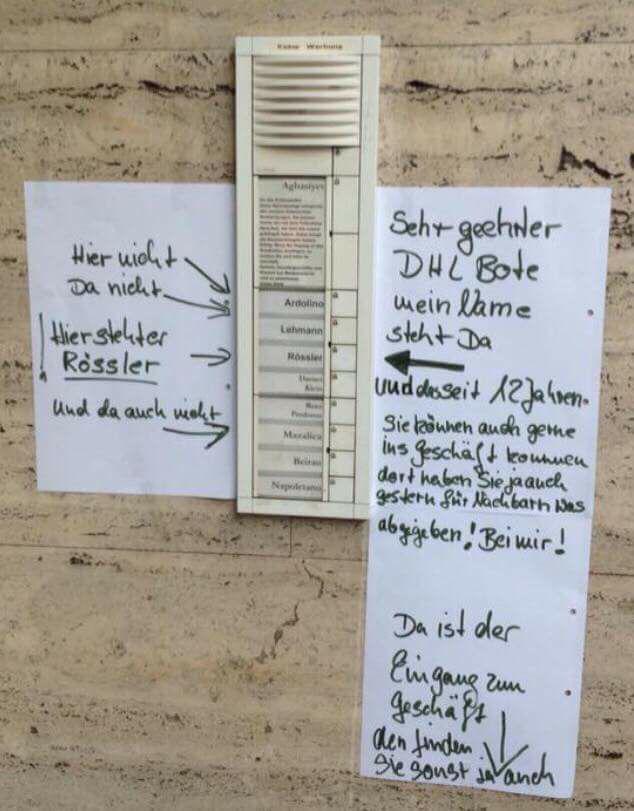 Keine Werbung
Aghasiyev
Ardolino
Lehmann
Rössler
Klein
Mazalica
Beirau
Napoletano
Hier nicht
Da nicht
! Hier steht er
Rössler
Und da auch nicht
Sehr geehrter
DHL Bote
mein Name
steht Da
Und das seit 12 Jahren.
Sie können auch gerne
ins Geschäft kommen
dort haben Sie ja auch
gestern für Nachbarn was
abgegeben! Bei mir!
Da ist der
Eingang zum
Geschäft
den finden
Sie sonst ja auch